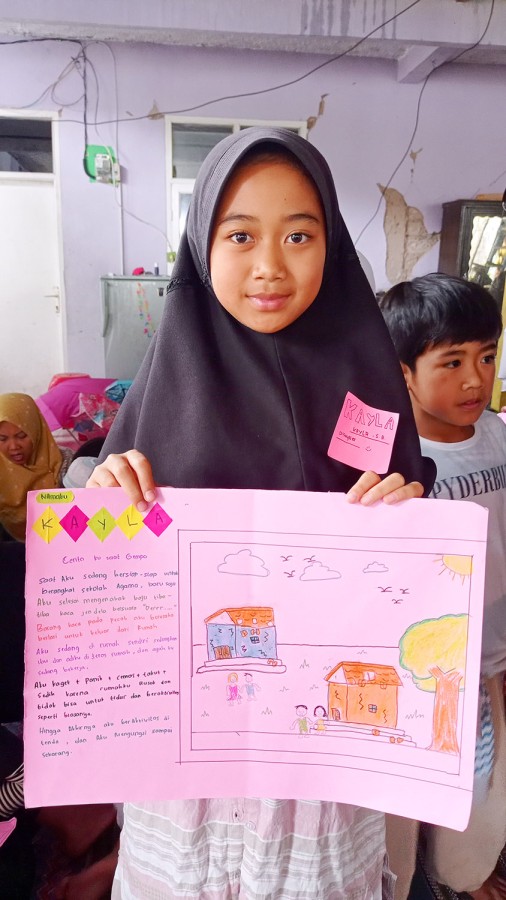 KAYLA
kayla .S.D
Namaku
KAYLA
Cerita ku saat Gempa
Saat Aku sedang bersiap-siap untuk
berangkat sekolah Agama, baru saja
Aku selesai mengenakan baju tiba-
tiba kaca jendela bersuara
Barang kaca pada pecah aku berusaha
berlari untuk keluar dari Rumah.
Aku sedang di rumah sendiri sedangkan
ibu dan adiku di teras rumah, dan ayah ku
sedang bekerja.
Aku kaget + panik + cemas + takut +
Sedih karena rumahku rusak dan
tidak bisa untuk tidur dan beraktivitas
seperti biasanya.
Hingga Akhirnya aku beraktivitas di
tenda, dan Aku mengungsi sampai
Sekarang.